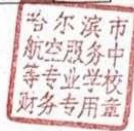 哈尔滨市
航空服务中
等专业学校
财务专用章